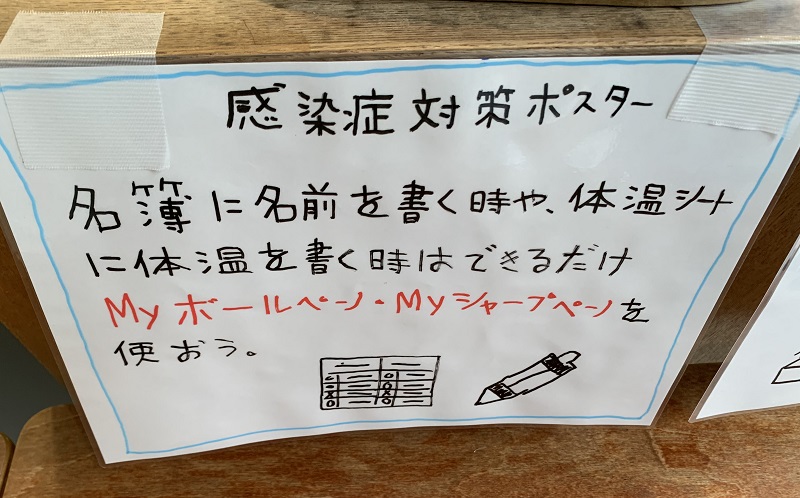 感染症対策ポスター
名簿に名前を書く時や、体温シート
に体温を書く時はできるだけ
Myボールペン・Myシャープペンを
使おう。